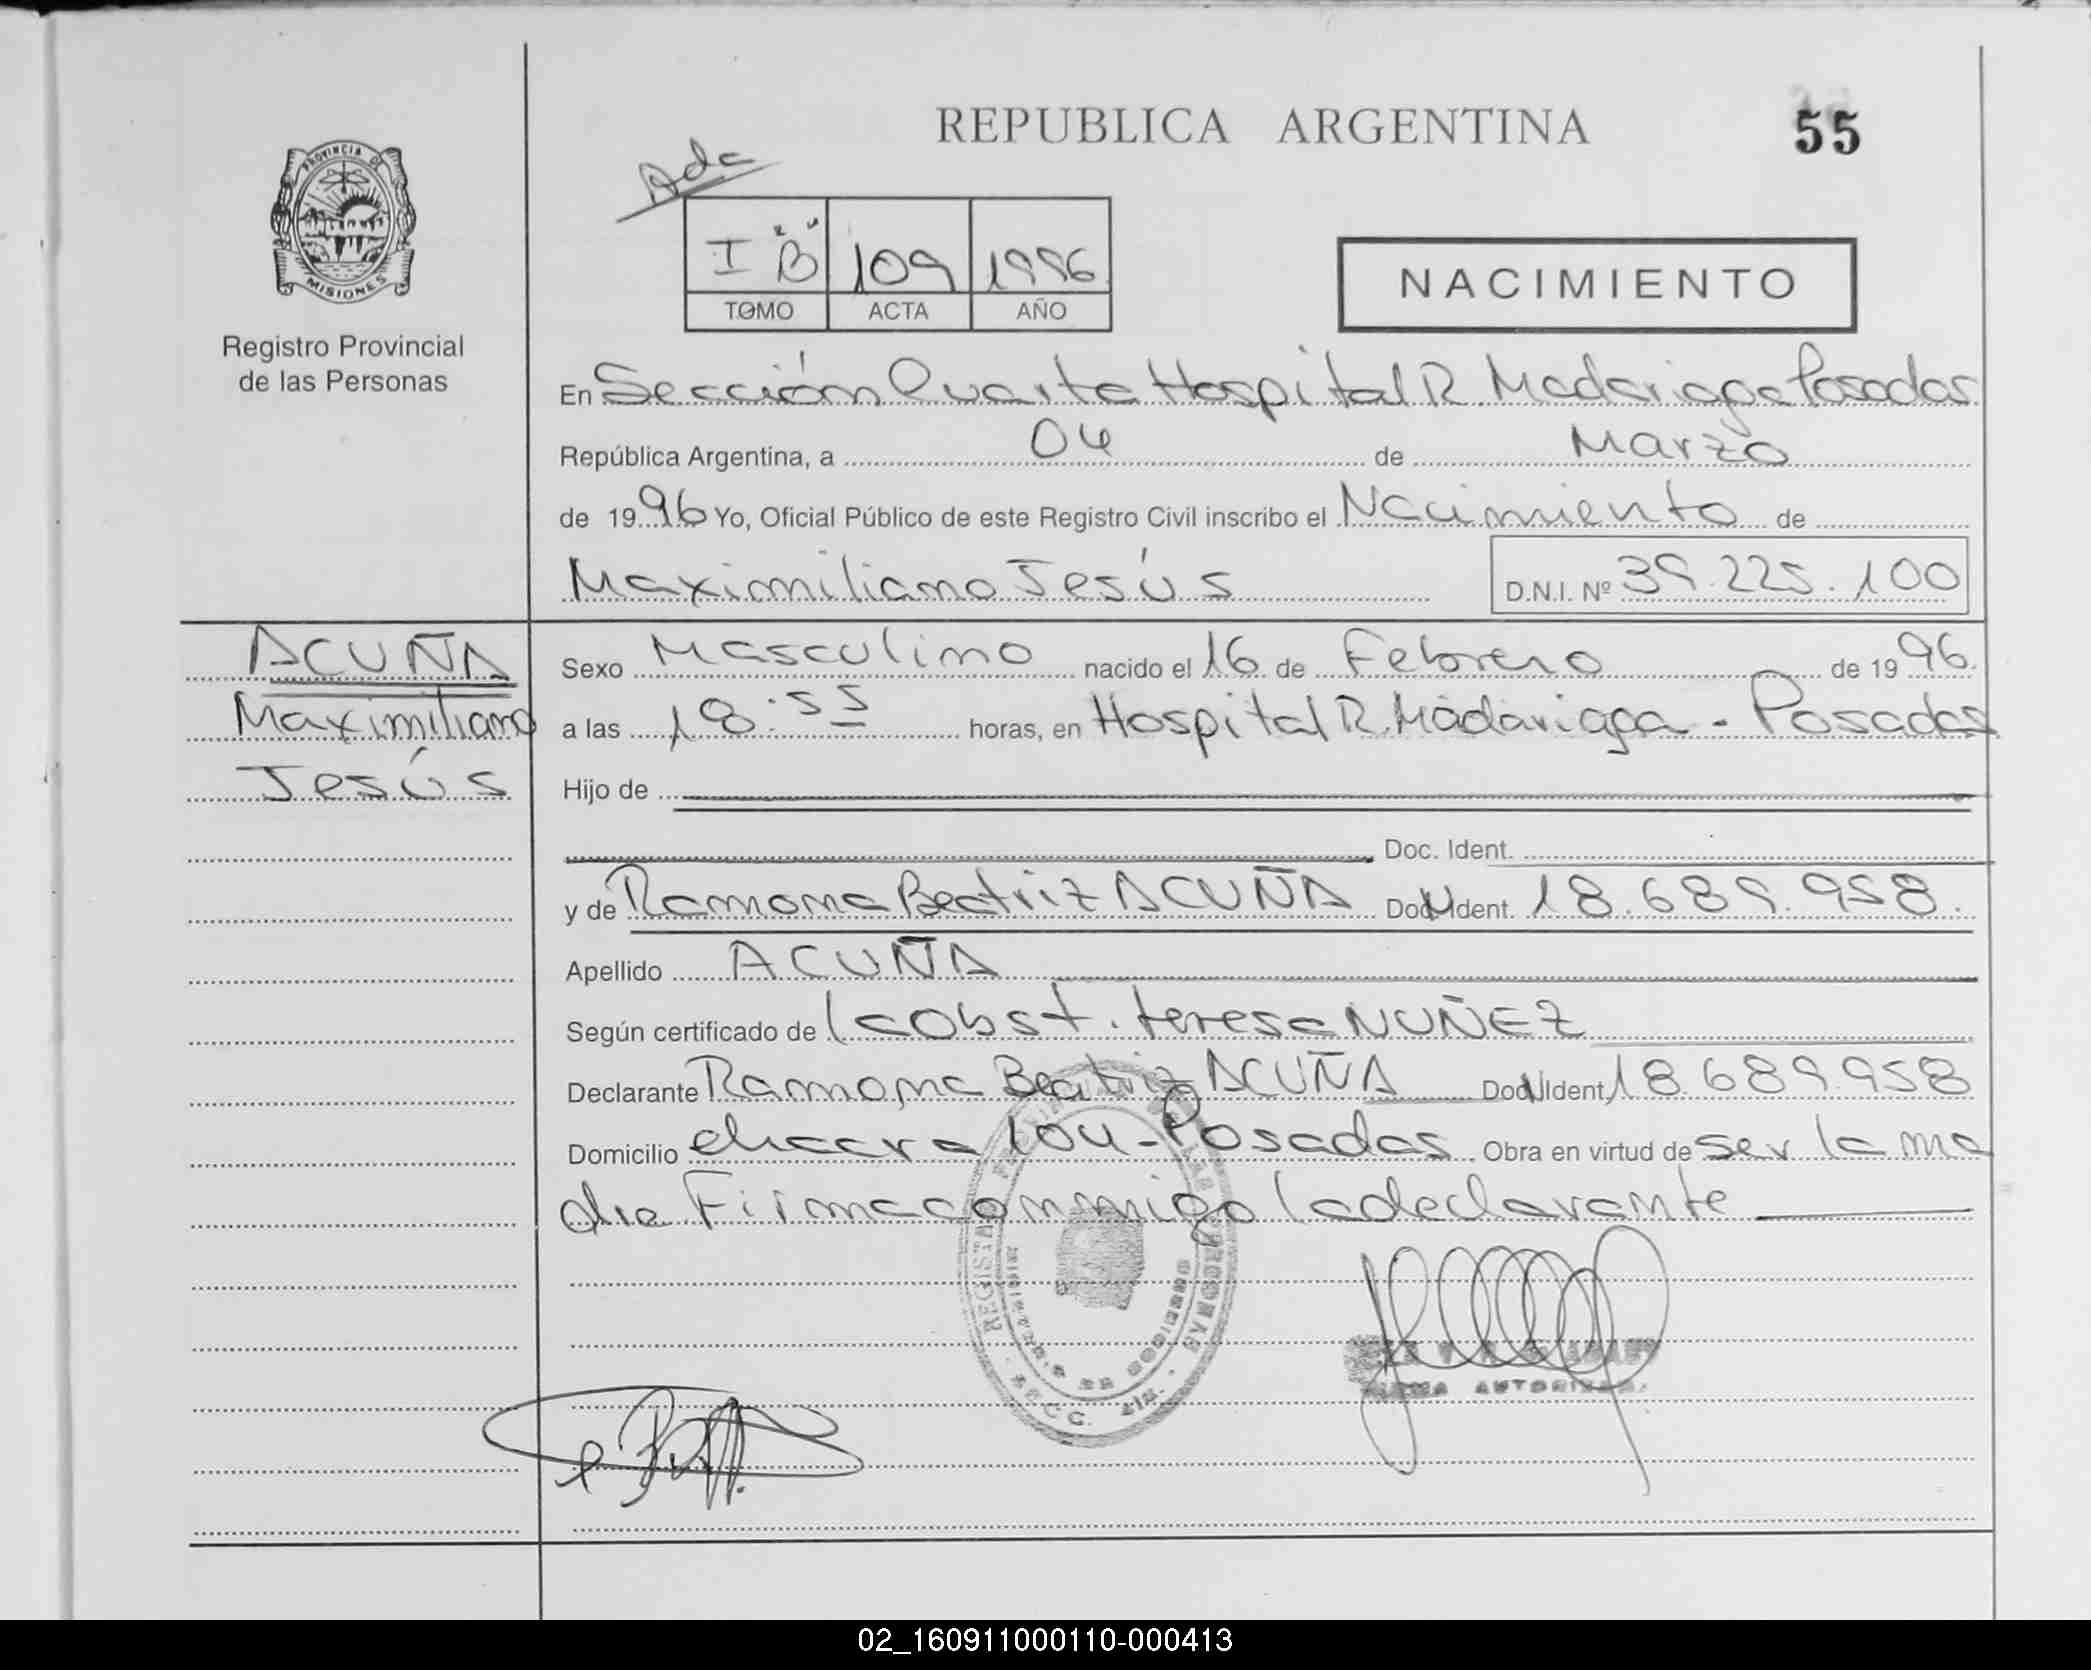 REPUBLICA ARGENTINA
55
PROVINCIA DE
MISIONES
Registro Provincial
de las Personas
Ada
I "B" 109 1996
TOMO ACTA AÑO
NACIMIENTO
En Sección Cuarta Hospital R. Madariaga Posadas
República Argentina, a 04 de Marzo
de 1996 Yo, Oficial Público de este Registro Civil inscribo el Nacimiento de
Maximiliano Jesús D.N.I. Nº 39.225.100
ACUÑA
Maximiliano
Jesús
Sexo Masculino nacido el 16 de Febrero de 1996.
a las 18:55 horas, en Hospital R. Madariaga - Posadas
Hijo de
Doc. Ident.
y de Ramona Beatriz ACUÑA Doc. Ident. 18.689.958.
Apellido ACUÑA
Según certificado de la obst. teresa NUÑEZ
Declarante Ramona Beatriz ACUÑA Doc. Ident. 18.689.958
Domicilio chacra 104 - Posadas Obra en virtud de ser la ma
dre Firma conmigo la declarante
02_160911000110-000413